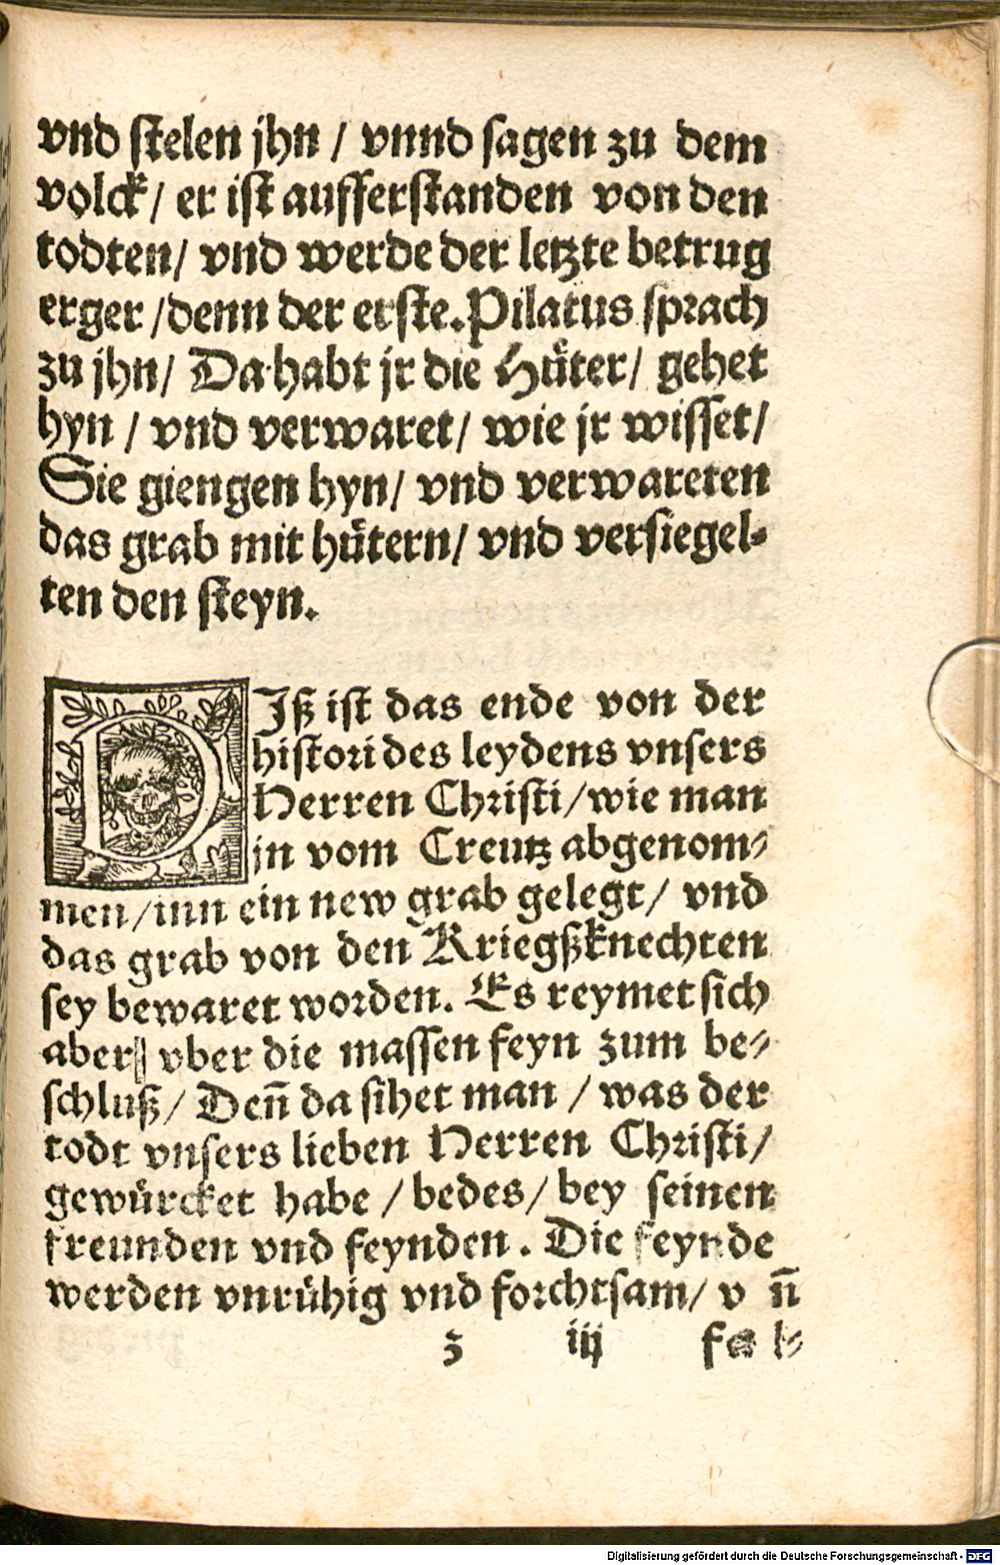 vnd stelen jhn / vnnd sagen zu dem
volck / er ist aufferstanden von den
todten / vnd werde der letzte betrug
erger / denn der erste. Pilatus sprach
zu jhn / Da habt jr die Hüter / gehet
hyn / vnd verwaret / wie jr wisset /
Sie giengen hyn / vnd verwareten
das grab mit hütern / vnd versiegel-
ten den steyn.
DIß ist das ende von der
histori des leydens vnsers
Herren Christi / wie man
jn vom Creutz abgenom-
men / inn ein new grab gelegt / vnd
das grab von den Kriegßknechten
sey bewaret worden. Es reymet sich
aber vber die massen feyn zum be-
schluß / Deñ da sihet man / was der
todt vnsers lieben Herren Christi /
gewürcket habe / bedes / bey seinen
freunden vnd feynden. Die feynde
werden vnrühig vnd forchtsam / vñ
z iij fal-
Digitalisierung gefördert durch die Deutsche Forschungsgemeinschaft - DFG